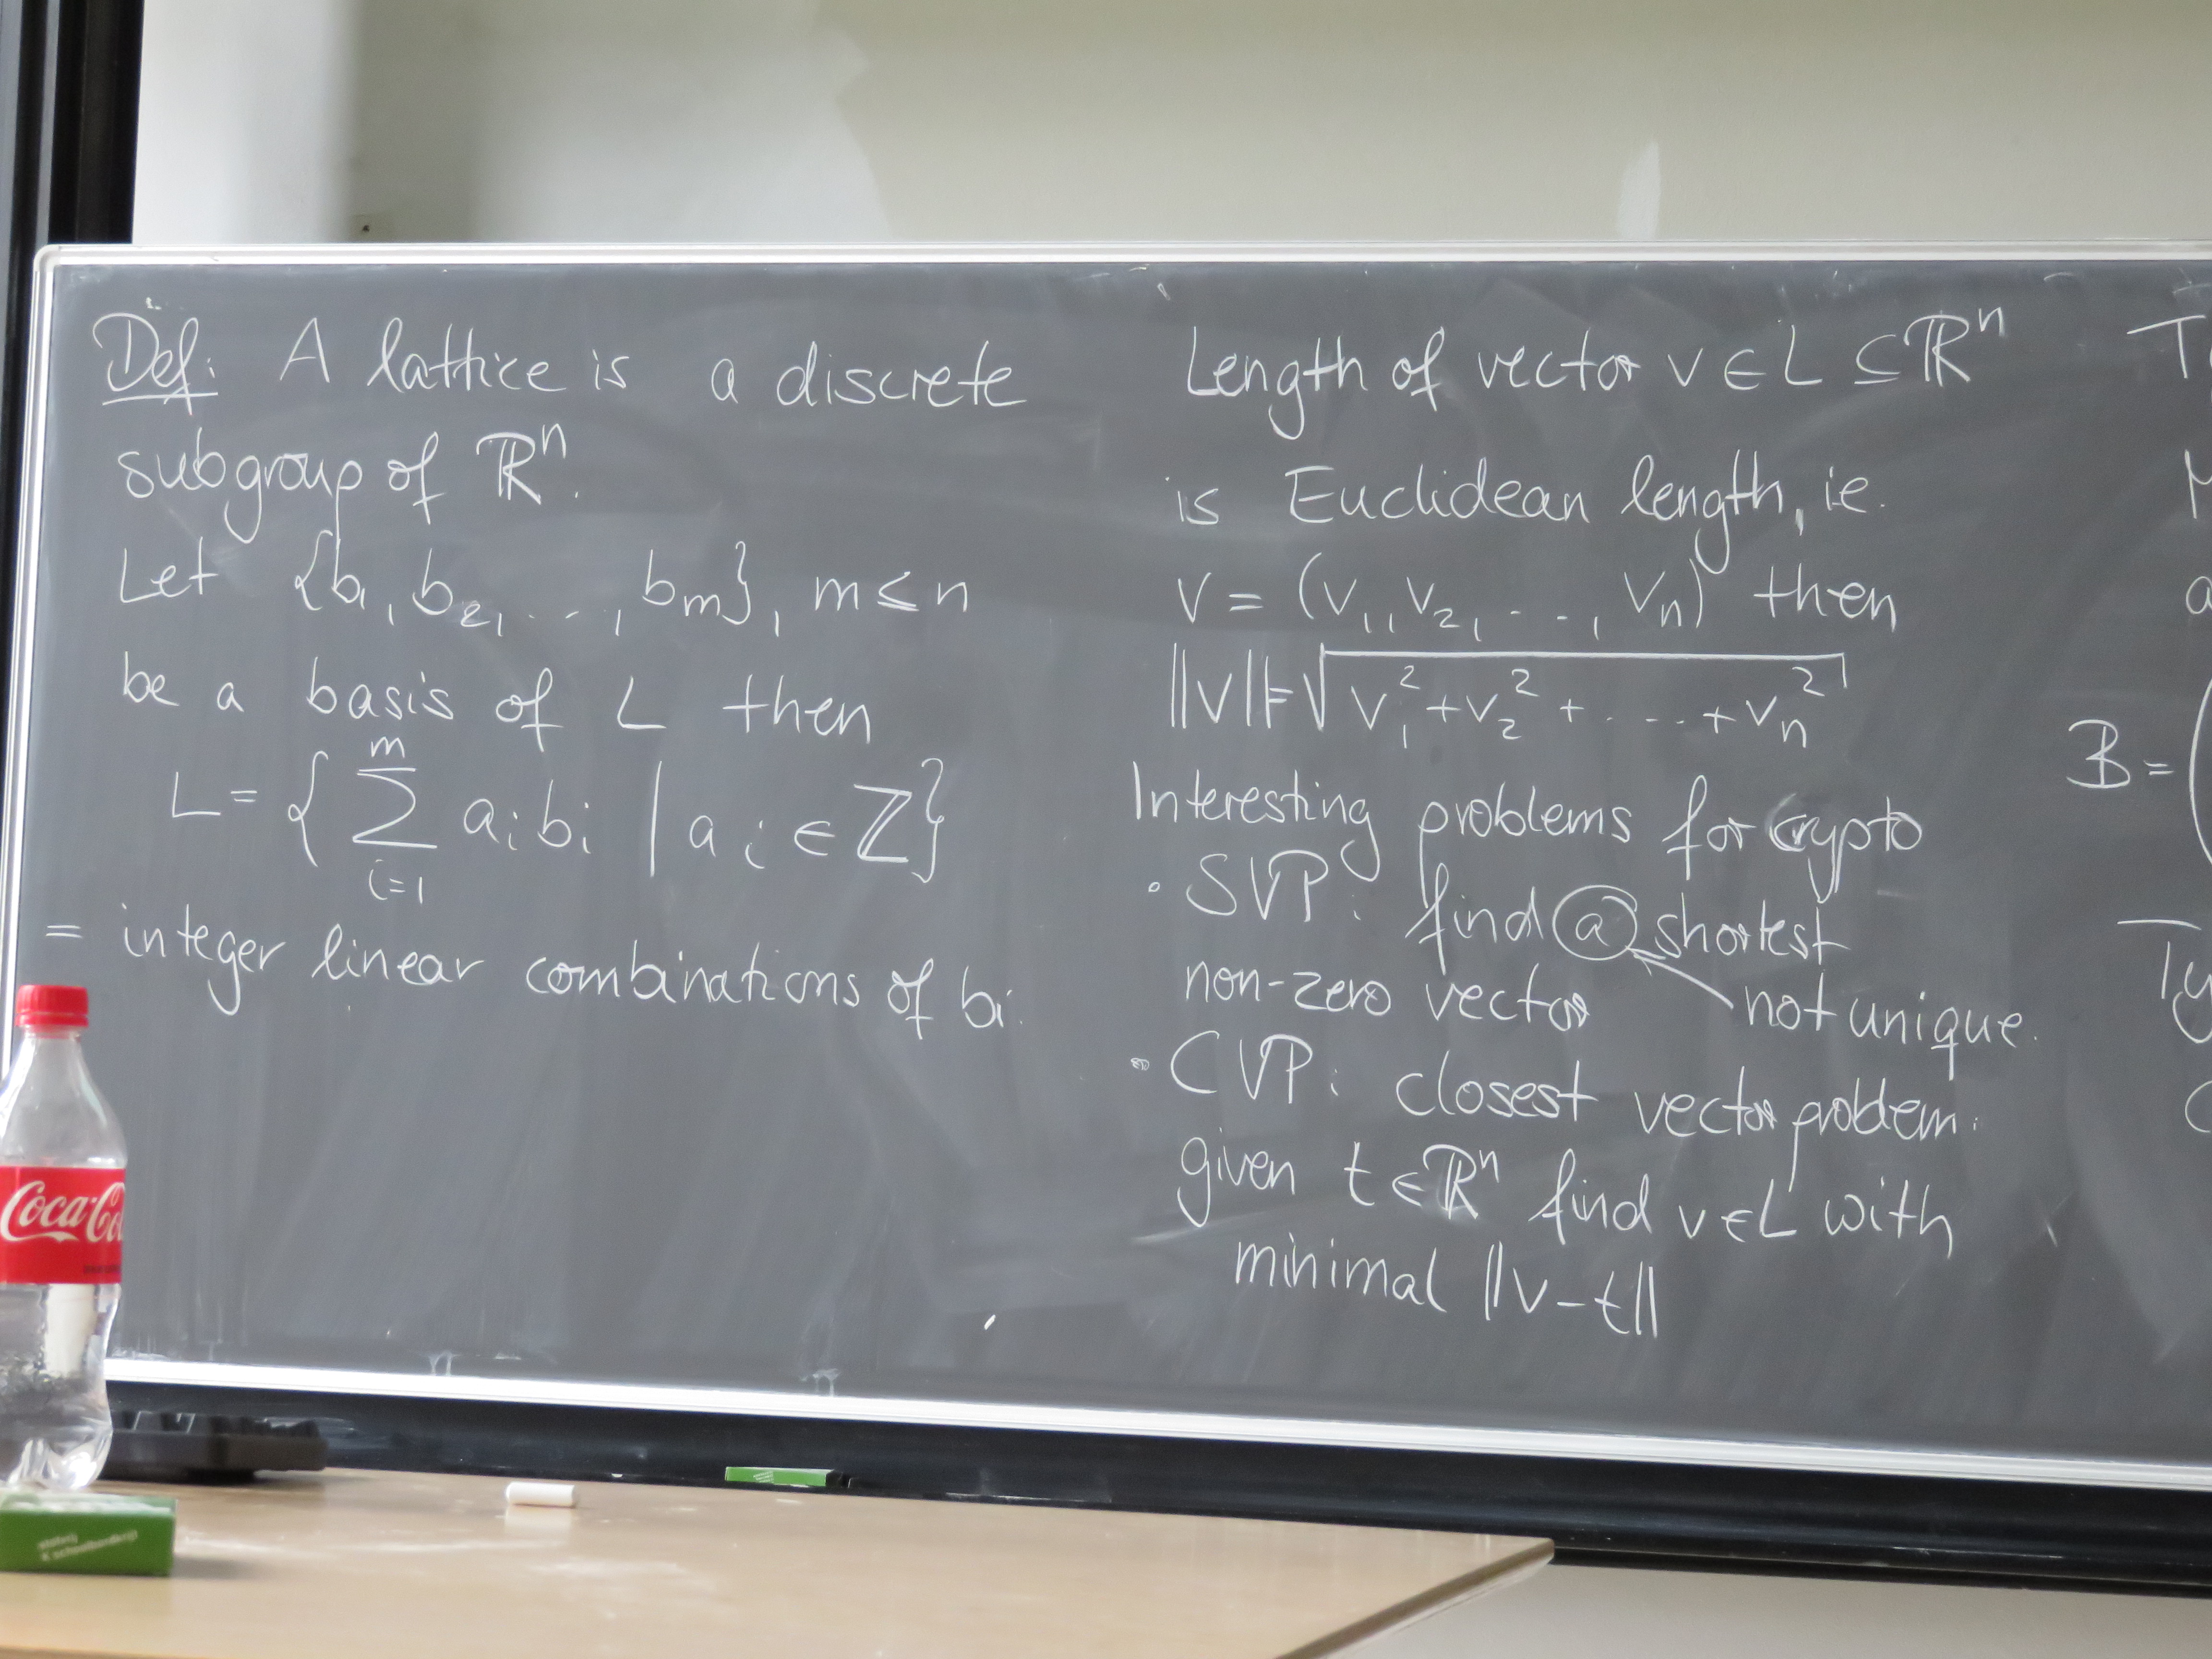 Def: A lattice is a discrete
subgroup of ℝⁿ.
Let {b₁, b₂, ..., bₘ}, m ≤ n
be a basis of L then
L = { ∑_{i=1}^{m} aᵢbᵢ | aᵢ ∈ ℤ}
= integer linear combinations of bᵢ.
Length of vector v ∈ L ⊆ ℝⁿ
is Euclidean length, ie.
v = (v₁, v₂, ..., vₙ) then
||v|| = √(v₁² + v₂² + ... + vₙ²)
Interesting problems for crypto
• SVP: find a shortest
non-zero vector
not unique.
• CVP: closest vector problem:
given t ∈ ℝⁿ find v ∈ L with
minimal ||v - t||
B = (
Coca-Co